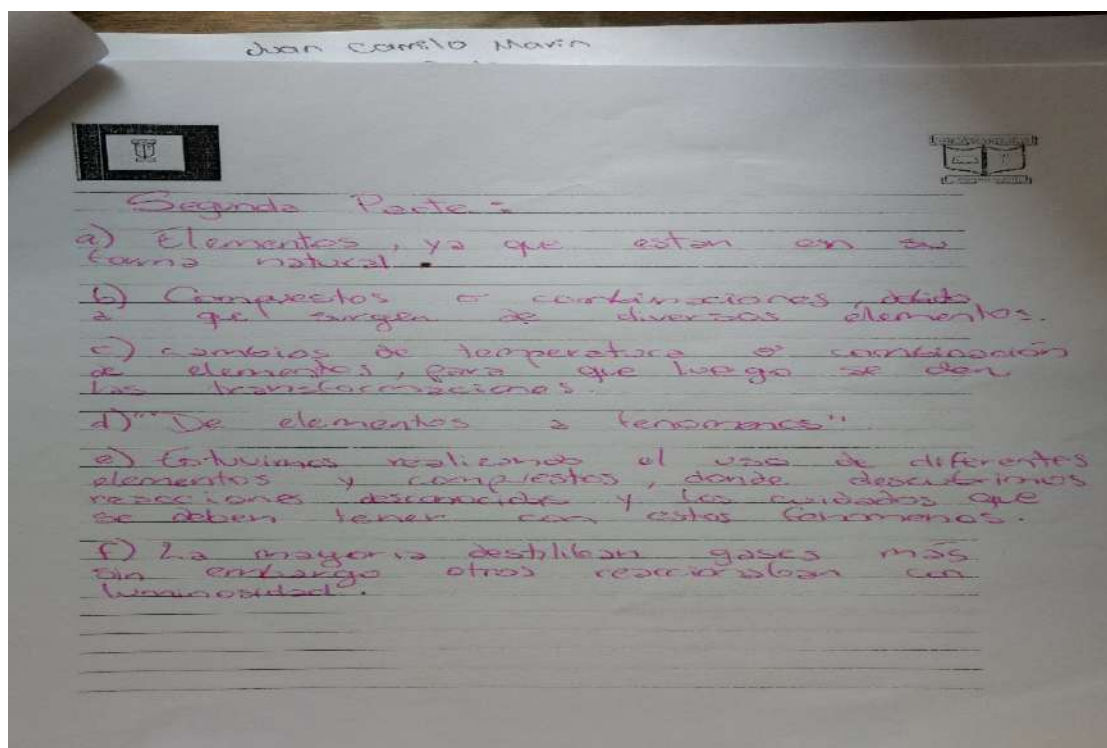 Juan Camilo Marin
Segunda Parte:
a) Elementos, ya que estan en su
forma natural.
b) Compuestos o combinaciones, debido
a que surgen de diversos elementos.
c) cambios de temperatura o combinación
de elementos, para que luego se den
las transformaciones.
d) "De elementos a fenomenos"
e) Estuvimos realizando el uso de diferentes
elementos y compuestos, donde descubrimos
reacciones desconocidas y los cuidados que
se deben tener con estos fenomenos.
f) La mayoria destilaban gases más
sin embargo otros reaccionaban con
luminosidad.